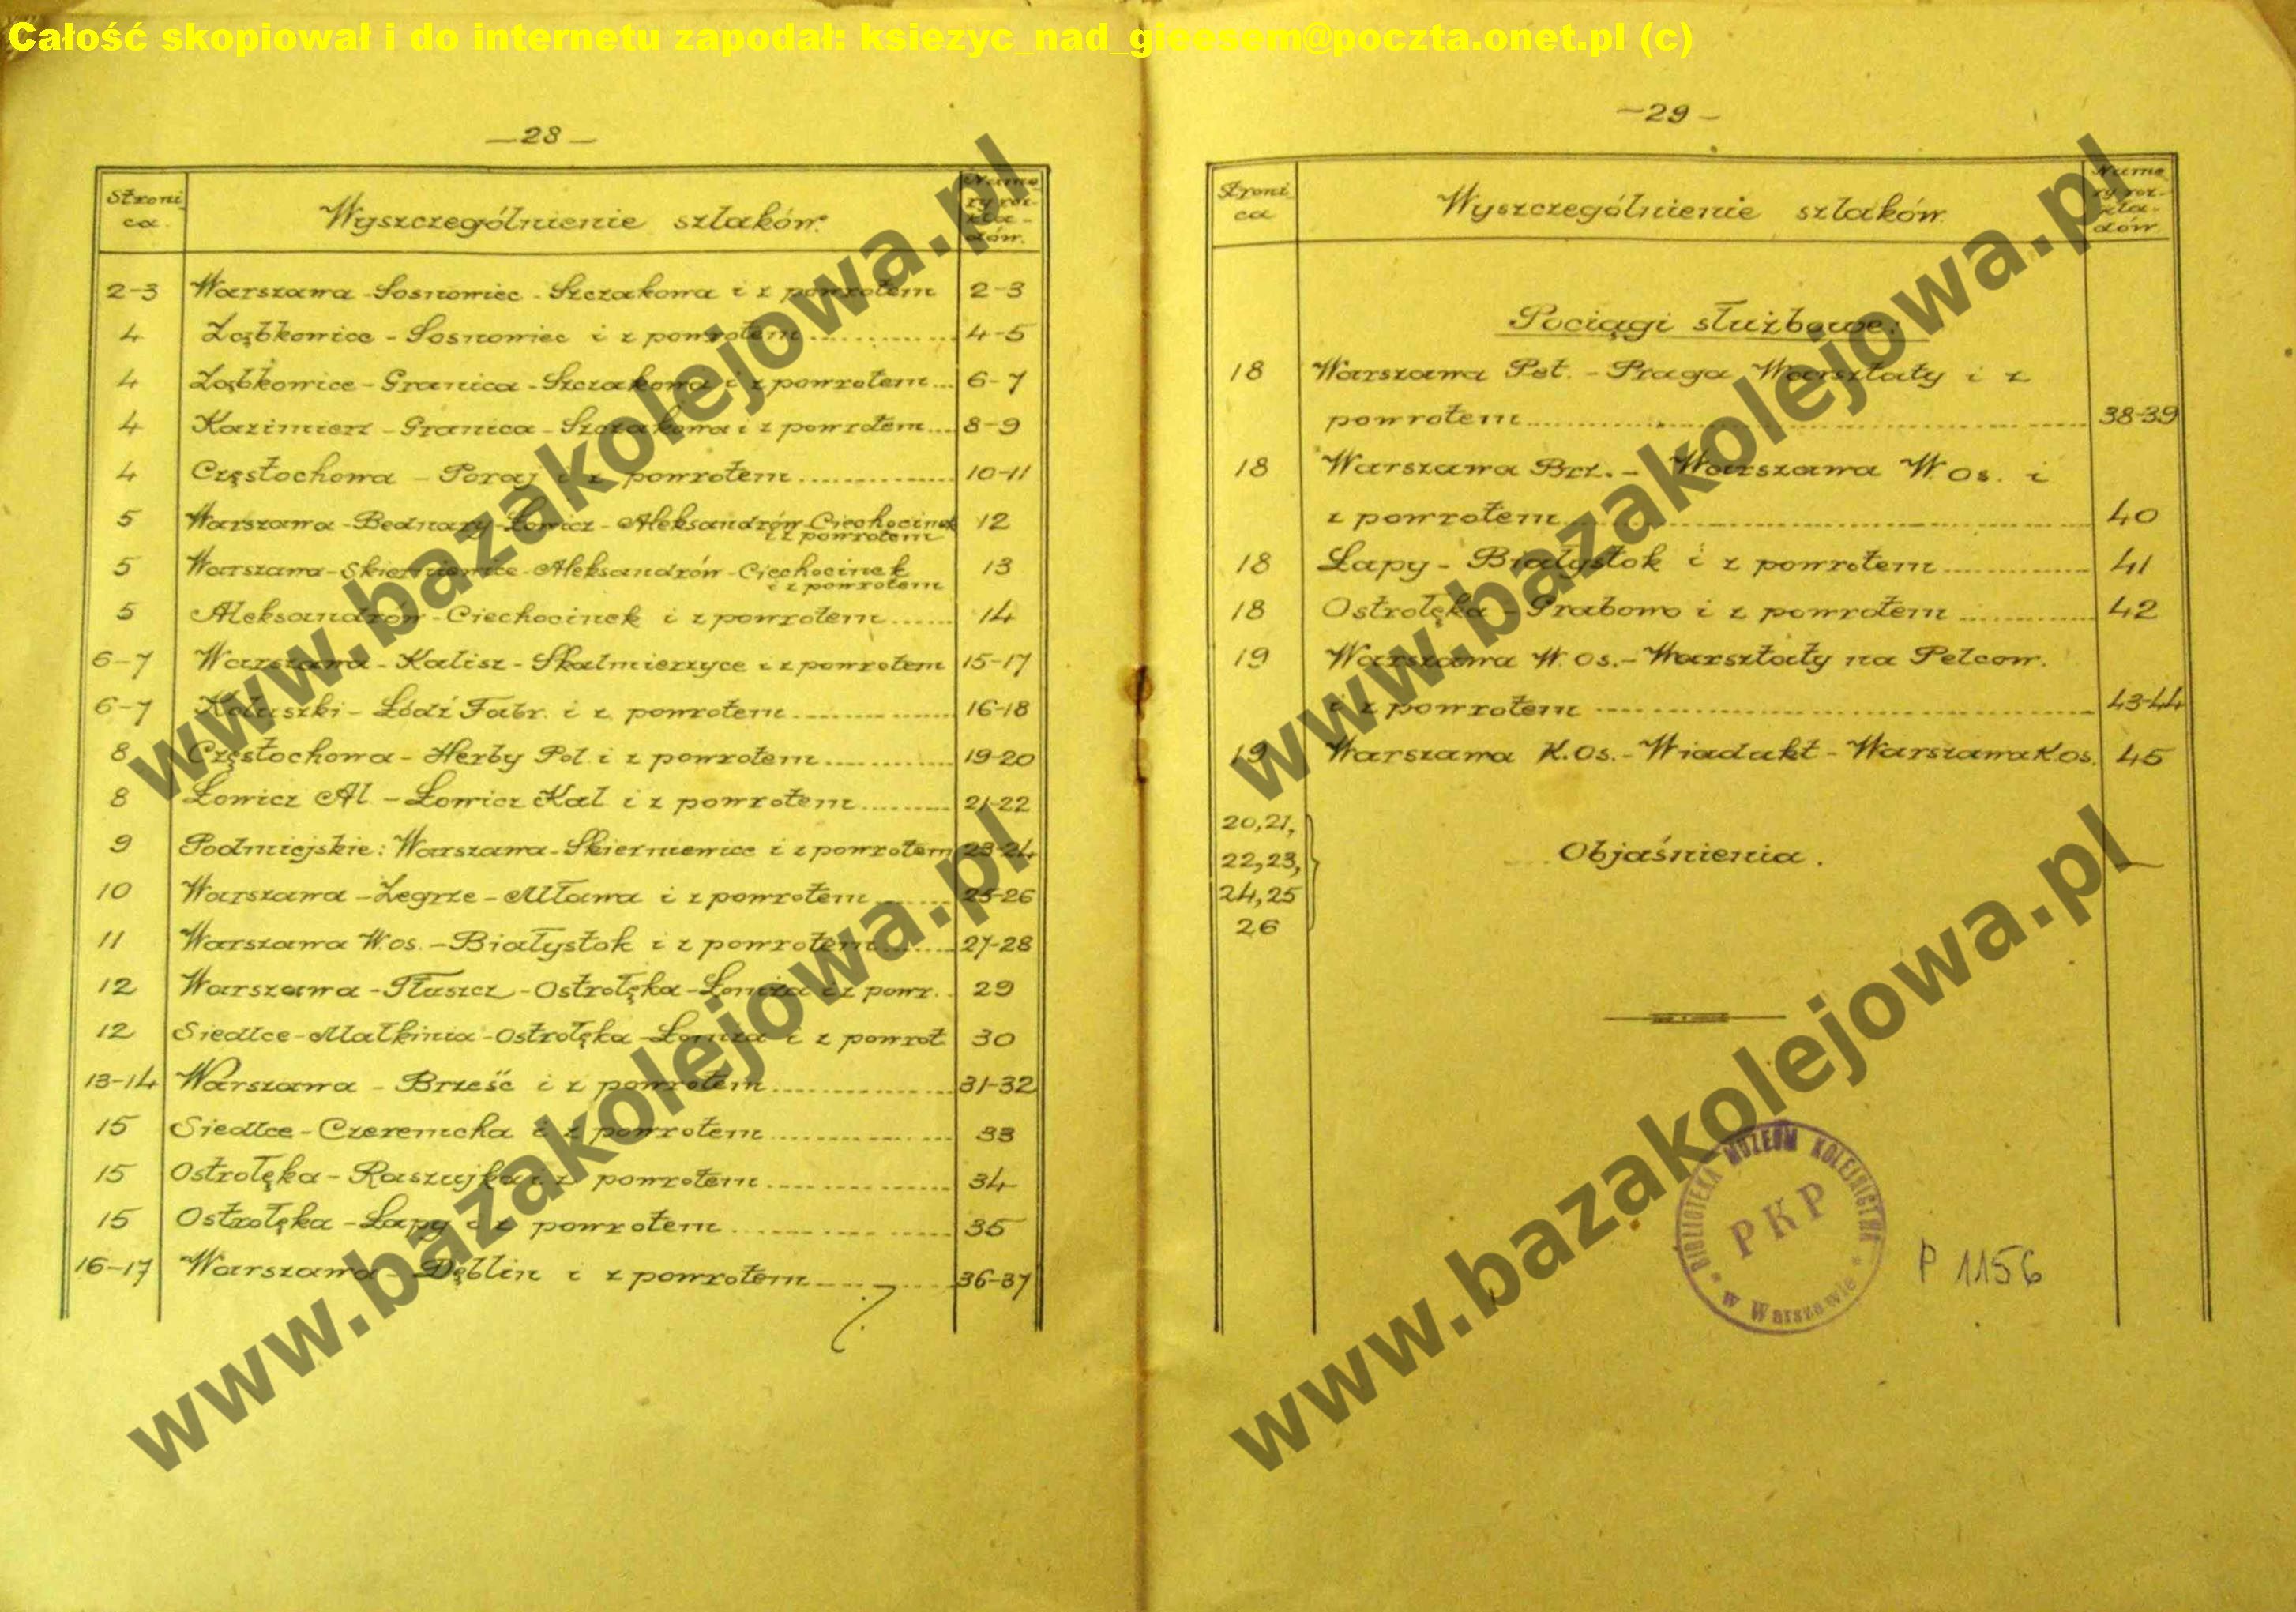 Całość skopiował i do internetu zapodał: ksiezyc_nad_gieesem@poczta.onet.pl (c)
—28—
Stroni_ca. Wyszczególnienie szlaków. Nume_ry roz_kła_dów.
2-3 Warszawa-Sosnowiec-Szczakowa i z powrotem 2-3
4 Ząbkowice-Sosnowiec i z powrotem 4-5
4 Ząbkowice-Granica-Szczakowa i z powrotem 6-7
4 Kazimierz-Granica-Szczakowa i z powrotem 8-9
4 Częstochowa-Poraj i z powrotem 10-11
5 Warszawa-Bednary-Łowicz-Aleksandrów-Ciechocinek 12
i z powrotem
5 Warszawa-Skierniewice-Aleksandrów-Ciechocinek 13
i z powrotem
5 Aleksandrów-Ciechocinek i z powrotem 14
6-7 Warszawa-Kalisz-Skalmierzyce i z powrotem 15-17
6-7 Koluszki-Łódź Fabr. i z powrotem 16-18
8 Częstochowa-Herby Pol. i z powrotem 19-20
8 Łowicz Al.-Łowicz Kal i z powrotem 21-22
9 Podmiejskie: Warszawa-Skierniewice i z powrotem 23-24
10 Warszawa-Zegrze-Mława i z powrotem 25-26
11 Warszawa W.os.-Białystok i z powrotem 27-28
12 Warszawa-Tłuszcz-Ostrołęka-Łomża i z powr. 29
12 Siedlce-Małkinia-Ostrołęka-Łomża i z powrot 30
13-14 Warszawa-Brześć i z powrotem 31-32
15 Siedlce-Czeremcha i z powrotem 33
15 Ostrołęka-Raszujka i z powrotem 34
15 Ostrołęka-Łapy i z powrotem 35
16-17 Warszawa-Dęblin i z powrotem 36-37
—29—
Stroni_ca Wyszczególnienie szlaków. Nume_ry roz_kła_dów
Pociągi służbowe:
18 Warszawa Pet.-Praga Warsztaty i z
powrotem 38-39
18 Warszawa Brz.-Warszawa W.os. i
z powrotem 40
18 Łapy-Białystok i z powrotem 41
18 Ostrołęka-Grabowo i z powrotem 42
19 Warszawa W.os.-Warsztaty na Pelcow.
i z powrotem 43-44
19 Warszawa K.os.-Wiadukt-Warszawa K os. 45
20,21,
22,23, Objaśnienia. —
24,25
26
BIBLIOTEKA MUZEUM KOLEJNICTWA
PKP
w Warszawie
P 1156
www.bazakolejowa.pl
www.bazakolejowa.pl
www.bazakolejowa.pl
www.bazakolejowa.pl